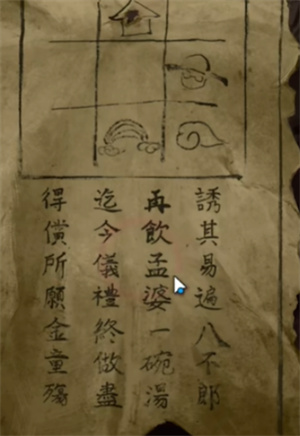 誘其易遍八不郎
再飲孟婆一碗湯
迄今儀禮終做盡
得償所願金童殤